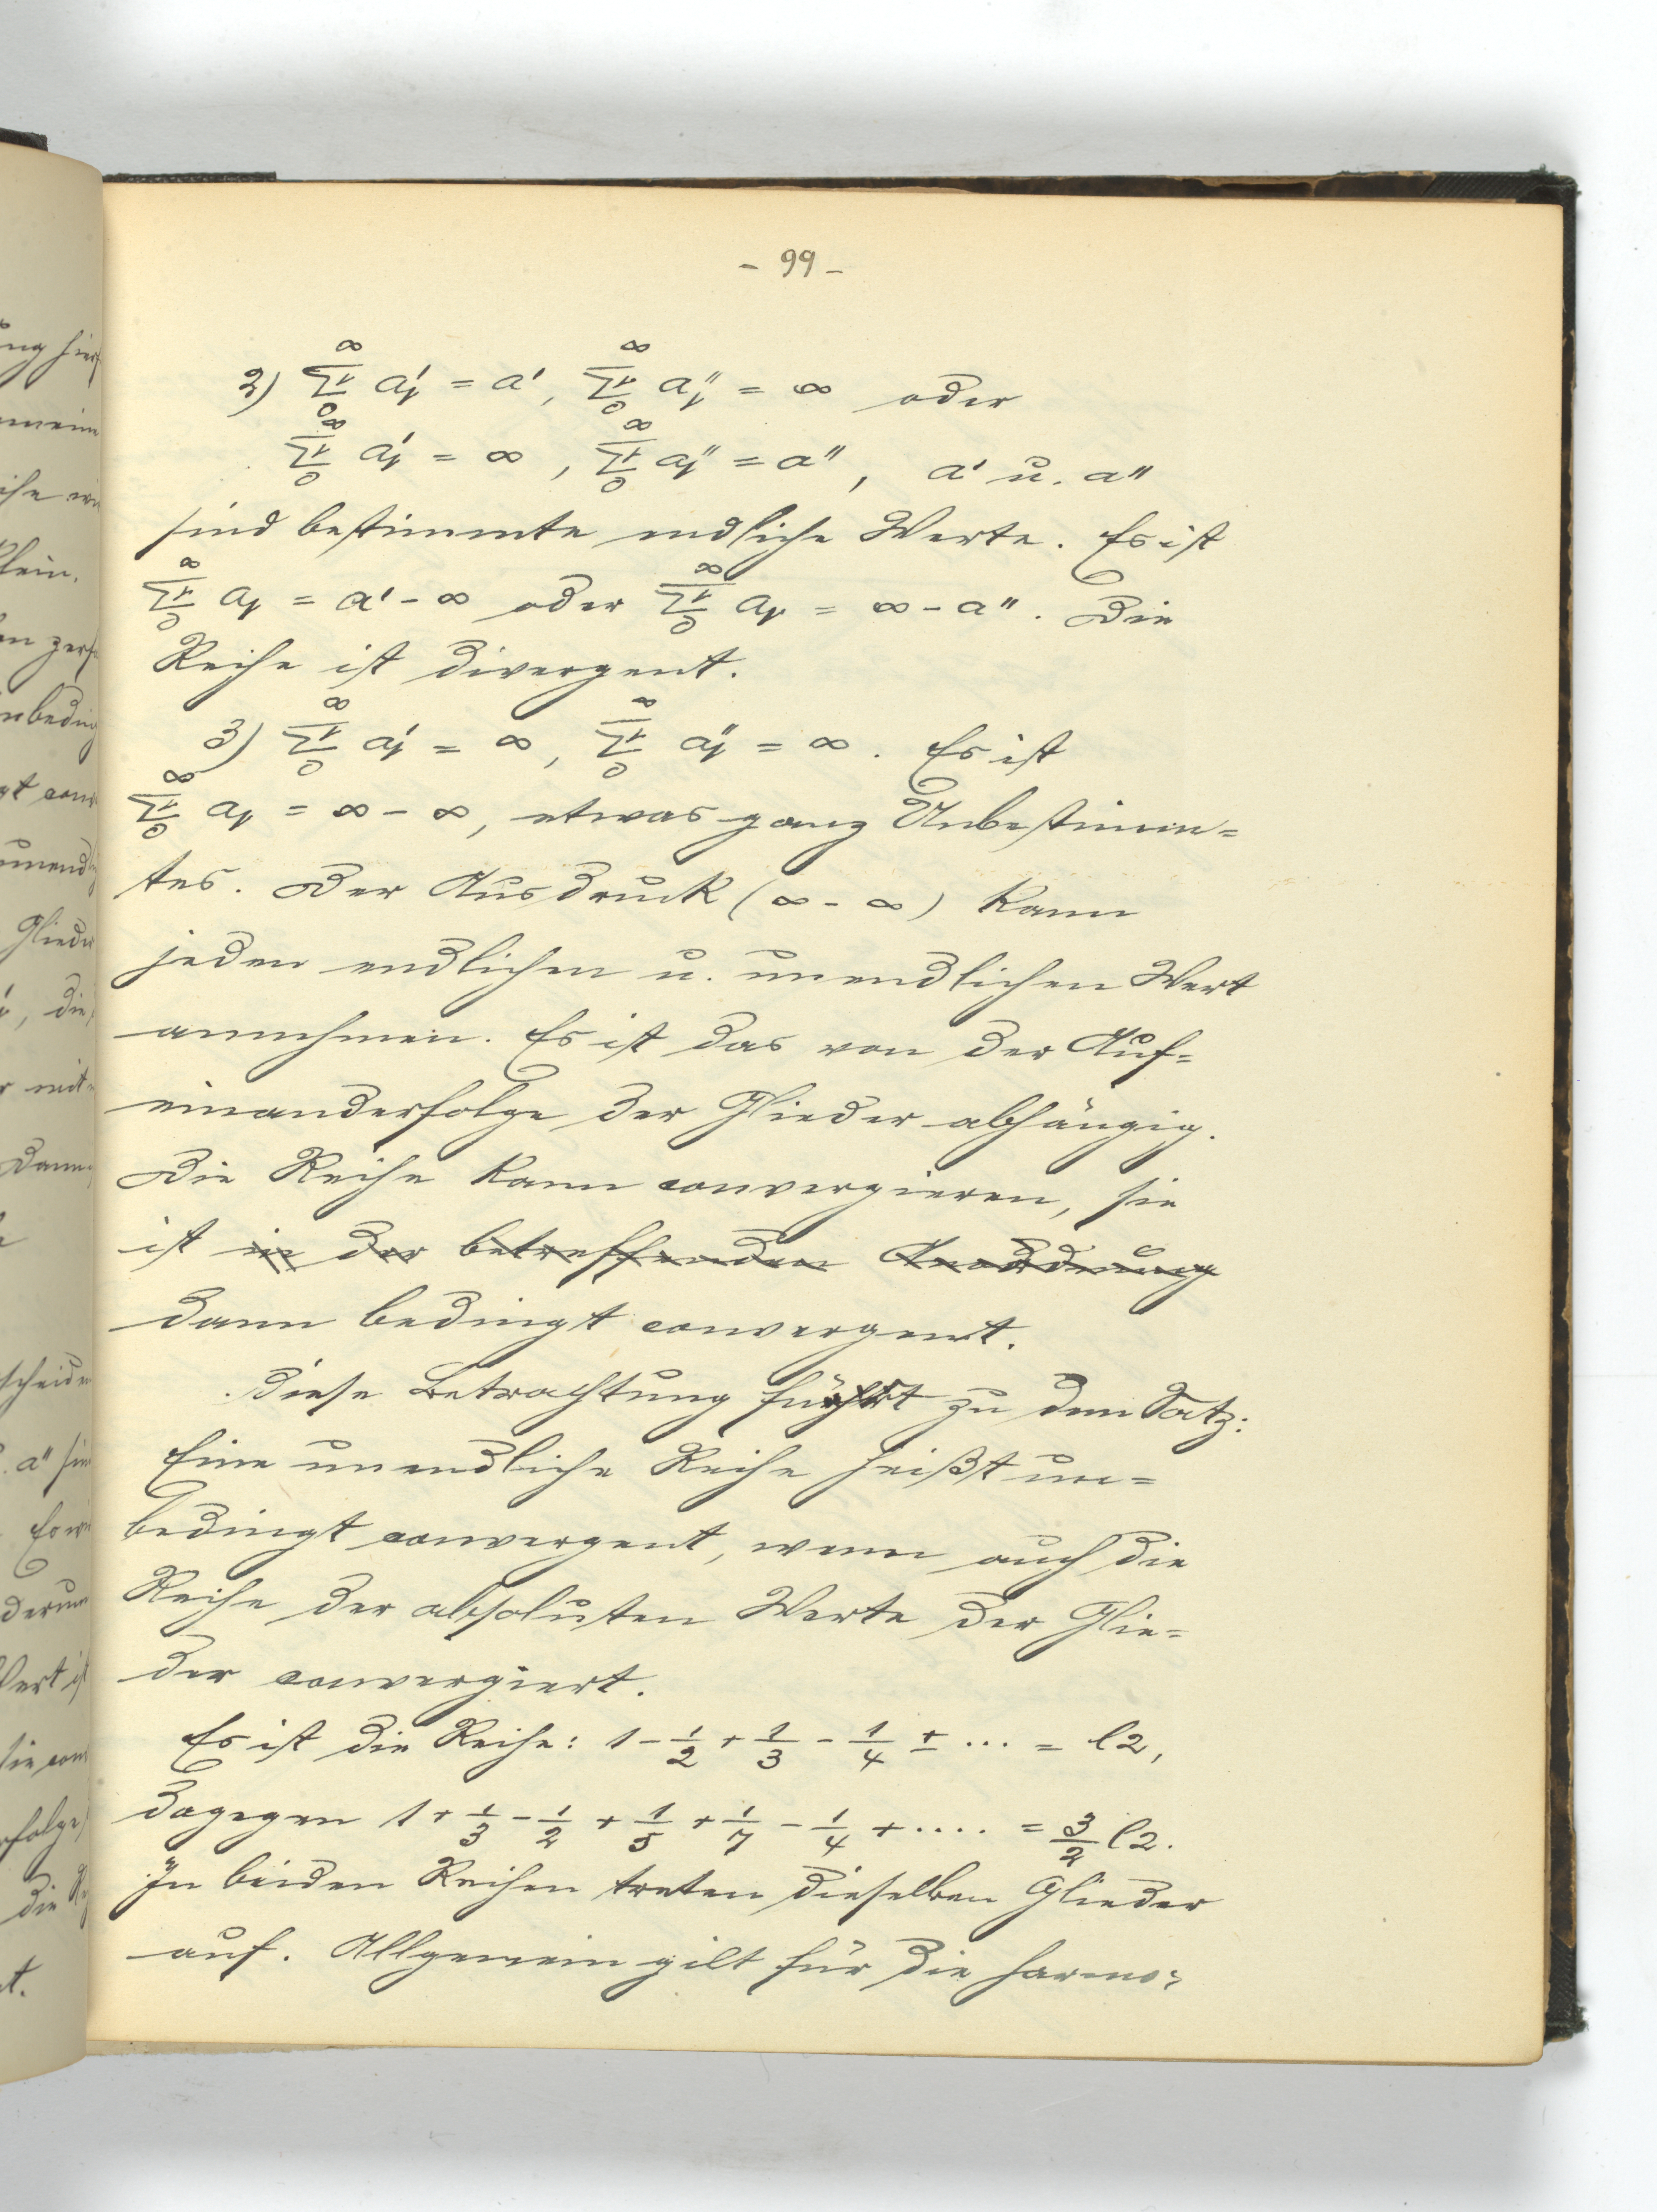 - 99 -
2) ∞ Σν 0 a'ν = a', ∞ Σν 0 a''ν = ∞ oder
∞ Σν 0 a'ν = ∞, ∞ Σν 0 a''ν = a'', a' u. a''
sind bestimmte endliche Werte. Es ist
∞ Σν 0 aν = a' - ∞ oder ∞ Σν 0 aν = ∞ - a''. Die
Reihe ist divergent.
3) ∞ Σν 0 a'ν = ∞, ∞ Σν 0 a''ν = ∞. Es ist
∞ Σν 0 aν = ∞ - ∞, etwas ganz Unbestimm=
tes. Der Ausdruck (∞ - ∞) kann
jeden endlichen u. unendlichen Wert
annehmen. Es ist das von der Auf=
einanderfolge der Glieder abhängig.
Die Reihe kann convergieren, sie
ist in der betreffenden Anordnung
dann bedingt convergent.
Diese Betrachtung führt zu dem Satz:
Eine unendliche Reihe heißt un=
bedingt convergent, wenn auch die
Reihe der absoluten Werte der Glie=
der convergiert.
Es ist die Reihe: 1 - 1/2 + 1/3 - 1/4 ± ... = l2,
dagegen 1 + 1/3 - 1/2 + 1/5 + 1/7 - 1/4 + .... = 3/2 l2.
In beiden Reihen treten dieselben Glieder
auf. Allgemein gilt für die harmo=